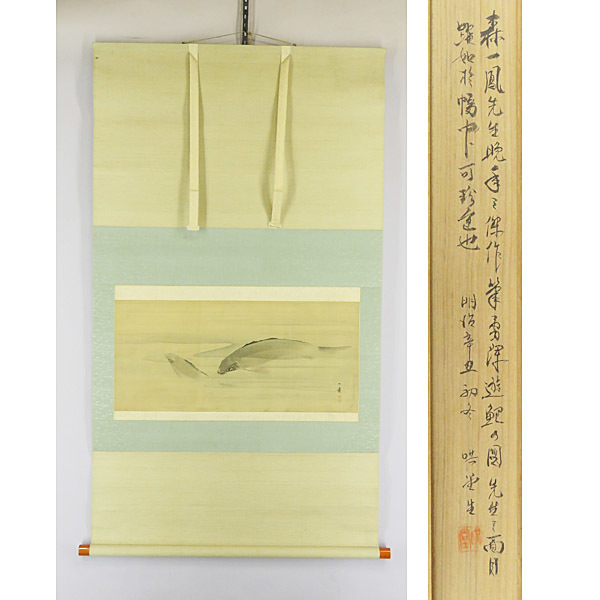 森一鳳先生晩年之傑作筆勇渾遊鯉の圖先生之面目
躍如於幅中可珍重也
明治辛丑初冬 哄堂生
一鳳